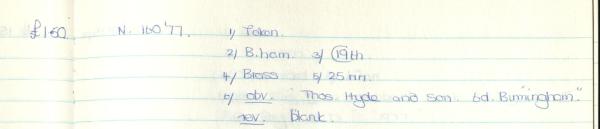 £1.50. N. 160'77. 1/ Token.
2/ B.ham. 3/ 19th
4/ Brass 5/ 25mm.
6/ obv. "Thos. Hyde and Son. 6d. Birmingham."
rev. Blank.